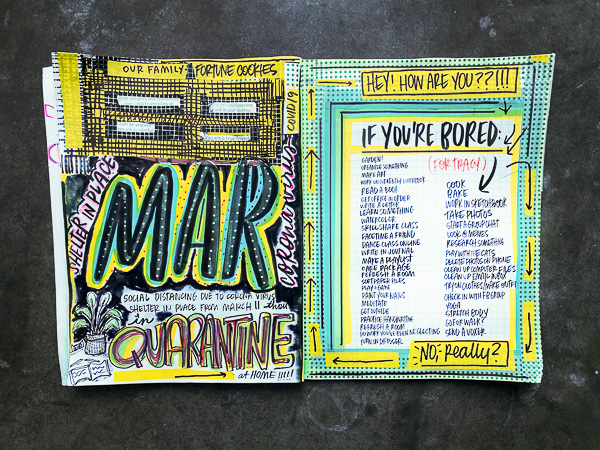 OUR FAMILY FORTUNE COOKIES
COVID19
SHELTER IN PLACE
MAR
corona virus
SOCIAL DISTANCING DUE TO CORONA VIRUS
SHELTER IN PLACE FROM MARCH 11 thru
in
QUARANTINE
at HOME !!!!!
HEY! HOW ARE YOU??!!!
IF YOU'RE BORED:
(FOR TRACY)
GARDEN!
ORGANIZE SOMETHING
MAKE ART
WORK ON
READ A BOOK
GET OFFICE IN ORDER
WRITE A LETTER
LEARN SOMETHING
WATERCOLOR
SKILLSHARE CLASS
FACETIME A FRIEND
DANCE CLASS ONLINE
WRITE IN JOURNAL
MAKE A PLAYLIST
CARE PACKAGE
REFRESH A ROOM
SORT PAPER FILES
PLAY A GAME
PAINT YOUR NAILS
MEDITATE
GET OUTSIDE
PRACTICE HANDWRITING
REFRESH A ROOM
DO WHAT YOU'VE BEEN NEGLECTING
TURN ON DIFFUSER
COOK
BAKE
WORK IN SKETCHBOOK
TAKE PHOTOS
START A GROUP CHAT
LOOK @ MEMES
RESEARCH SOMETHING
PLAY WITH THE CATS
DELETE PHOTOS ON PHONE
CLEAN UP COMPUTER FILES
CLEAN UP EMAIL INBOX
TRY ON CLOTHES/MAKE OUTFIT
CHECK IN WITH FB GROUP
YOGA
STRETCH BODY
GO FOR WALK?
SEND A VOXER
NO, Really?